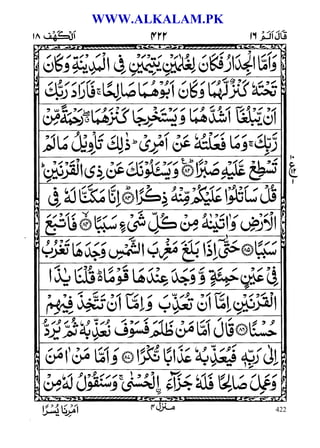 WWW.ALKALAM.PK
قَالَ اَلَمۡ ١٦ ٤٢٢ اَلۡكَهۡف ١٨
وَاَمَّا الۡجِدَارُ فَكَانَ لِغُلٰمَيۡنِ يَتِيۡمَيۡنِ فِى الۡمَدِيۡنَةِ وَكَانَ
تَحۡتَهٗ كَنۡزٌ لَّهُمَا وَكَانَ اَبُوۡهُمَا صَالِحًا ۚ فَاَرَادَ رَبُّكَ
اَنۡ يَّبۡلُغَاۤ اَشُدَّهُمَا وَيَسۡتَخۡرِجَا كَنۡزَهُمَا ۖ رَحۡمَةً مِّنۡ
رَّبِّكَ ۚ وَمَا فَعَلۡتُهٗ عَنۡ اَمۡرِىۡ ؕ ذٰلِكَ تَاۡوِيۡلُ مَا لَمۡ
تَسۡطِعۡ عَّلَيۡهِ صَبۡرًا ؕ ﴿٨٢﴾ وَيَسۡـَٔلُوۡنَكَ عَنۡ ذِى الۡقَرۡنَيۡنِ ؕ
قُلۡ سَاَتۡلُوۡا عَلَيۡكُمۡ مِّنۡهُ ذِكۡرًا ؕ ﴿٨٣﴾ اِنَّا مَكَّنَّا لَهٗ فِى
الۡاَرۡضِ وَاٰتَيۡنٰهُ مِنۡ كُلِّ شَىۡءٍ سَبَبًا ۙ ﴿٨٤﴾ فَاَتۡبَعَ
سَبَبًا ﴿٨٥﴾ حَتّٰٓى اِذَا بَلَغَ مَغۡرِبَ الشَّمۡسِ وَجَدَهَا تَغۡرُبُ
فِىۡ عَيۡنٍ حَمِئَةٍ وَّوَجَدَ عِنۡدَهَا قَوۡمًا ؕ قُلۡنَا يٰذَا
الۡقَرۡنَيۡنِ اِمَّاۤ اَنۡ تُعَذِّبَ وَاِمَّاۤ اَنۡ تَتَّخِذَ فِيۡهِمۡ
حُسۡنًا ﴿٨٦﴾ قَالَ اَمَّا مَنۡ ظَلَمَ فَسَوۡفَ نُعَذِّبُهٗ ثُمَّ يُرَدُّ
اِلٰى رَبِّهٖ فَيُعَذِّبُهٗ عَذَابًا نُّكۡرًا ﴿٨٧﴾ وَاَمَّا مَنۡ اٰمَنَ
وَعَمِلَ صَالِحًا فَلَهٗ جَزَآءَ ۨالۡحُسۡنٰى ۚ وَسَنَقُوۡلُ لَهٗ مِنۡ
اَمۡرِنَا يُسۡرًا منزل ٤ 422